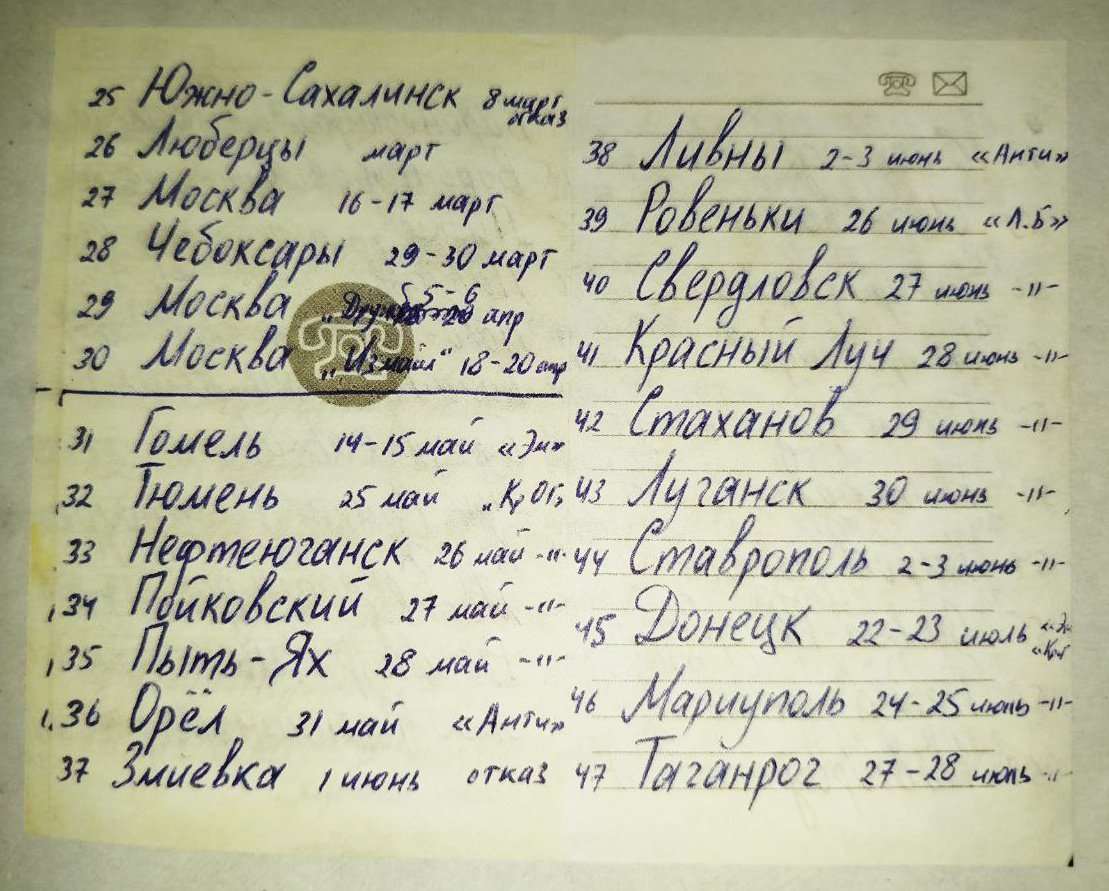 25 Южно-Сахалинск 8 март
отказ
26 Люберцы март
27 Москва 16-17 март
28 Чебоксары 29-30 март
29 Москва 5-6 апр
30 Москва „Измайл" 18-20 апр
31 Гомель 14-15 май «Эн»
32 Тюмень 25 май
33 Нефтеюганск 26 май -"-
34 Пойковский 27 май -"-
35 Пыть-Ях 28 май -"-
36 Орёл 31 май «Анти»
37 Змиевка 1 июнь отказ
38 Ливны 2-3 июнь «Анти»
39 Ровеньки 26 июнь «Л.Б»
40 Свердловск 27 июнь -"-
41 Красный Луч 28 июнь -"-
42 Стаханов 29 июнь -"-
43 Луганск 30 июнь -"-
44 Ставрополь 2-3 июнь -"-
45 Донецк 22-23 июль
46 Мариуполь 24-25 июль -"-
47 Таганрог 27-28 июль -"-